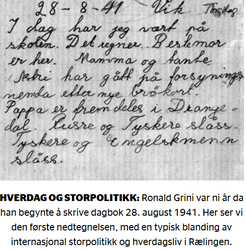 28-8-41 Vik Torsdag
I dag har jeg vært på
skolen. Det regner. Bestemor
er her. Mamma og tante
har gått på forsynings
nemda etter nye brökort
Pappa er fremdeles i
dal. Russe og Tyskere slåss.
Tyskere og Engelskmenn
slåss.
HVERDAG OG STORPOLITIKK: Ronald Grini var ni år da
han begynte å skrive dagbok 28. august 1941. Her ser vi
den første nedtegnelsen, med en typisk blanding av
internasjonal storpolitikk og hverdagsliv i Rælingen.